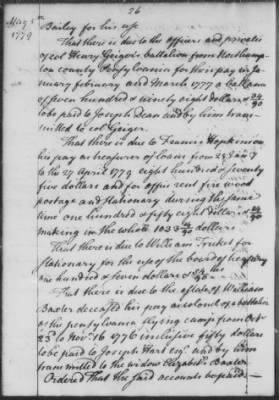 26
May 5th
1779
Bailey for his use
That there is due to the officers and privates
of col Henry Geiger's battalion from Northamp
ton county Pensylvania for their pay in Ja
nuary february and March 1777 a ballance
of seven hundred & ninety eight dollars & 24/90
to be paid to Joseph Dean and by him trans
mitted to col Geiger.
That there is due to Francis Hopkinson
his pay as treasurer of loans from 28 Jany
to the 27 April 1779 eight hundred & twenty
five dollars and for office rent fire wood
postage and stationary during the same
time one hundred & fifty eight dollars & 24/90
making in the whole 1033 24/90 dollars.
That there is due to William Tricket for
stationary for the use of the board of treasury
one hundred & seven dollars & 54/90
That there is due to the estate of William
Baxter deceased his pay as colonel of a battalion
of the pensylvania flying camp from Oct
23d to Novr 16 1776 inclusive fifty dollars
to be paid to Joseph Hart esqr and by him
transmitted to the widow Elizabeth Baxter
Ordered that the said accounts be paid.